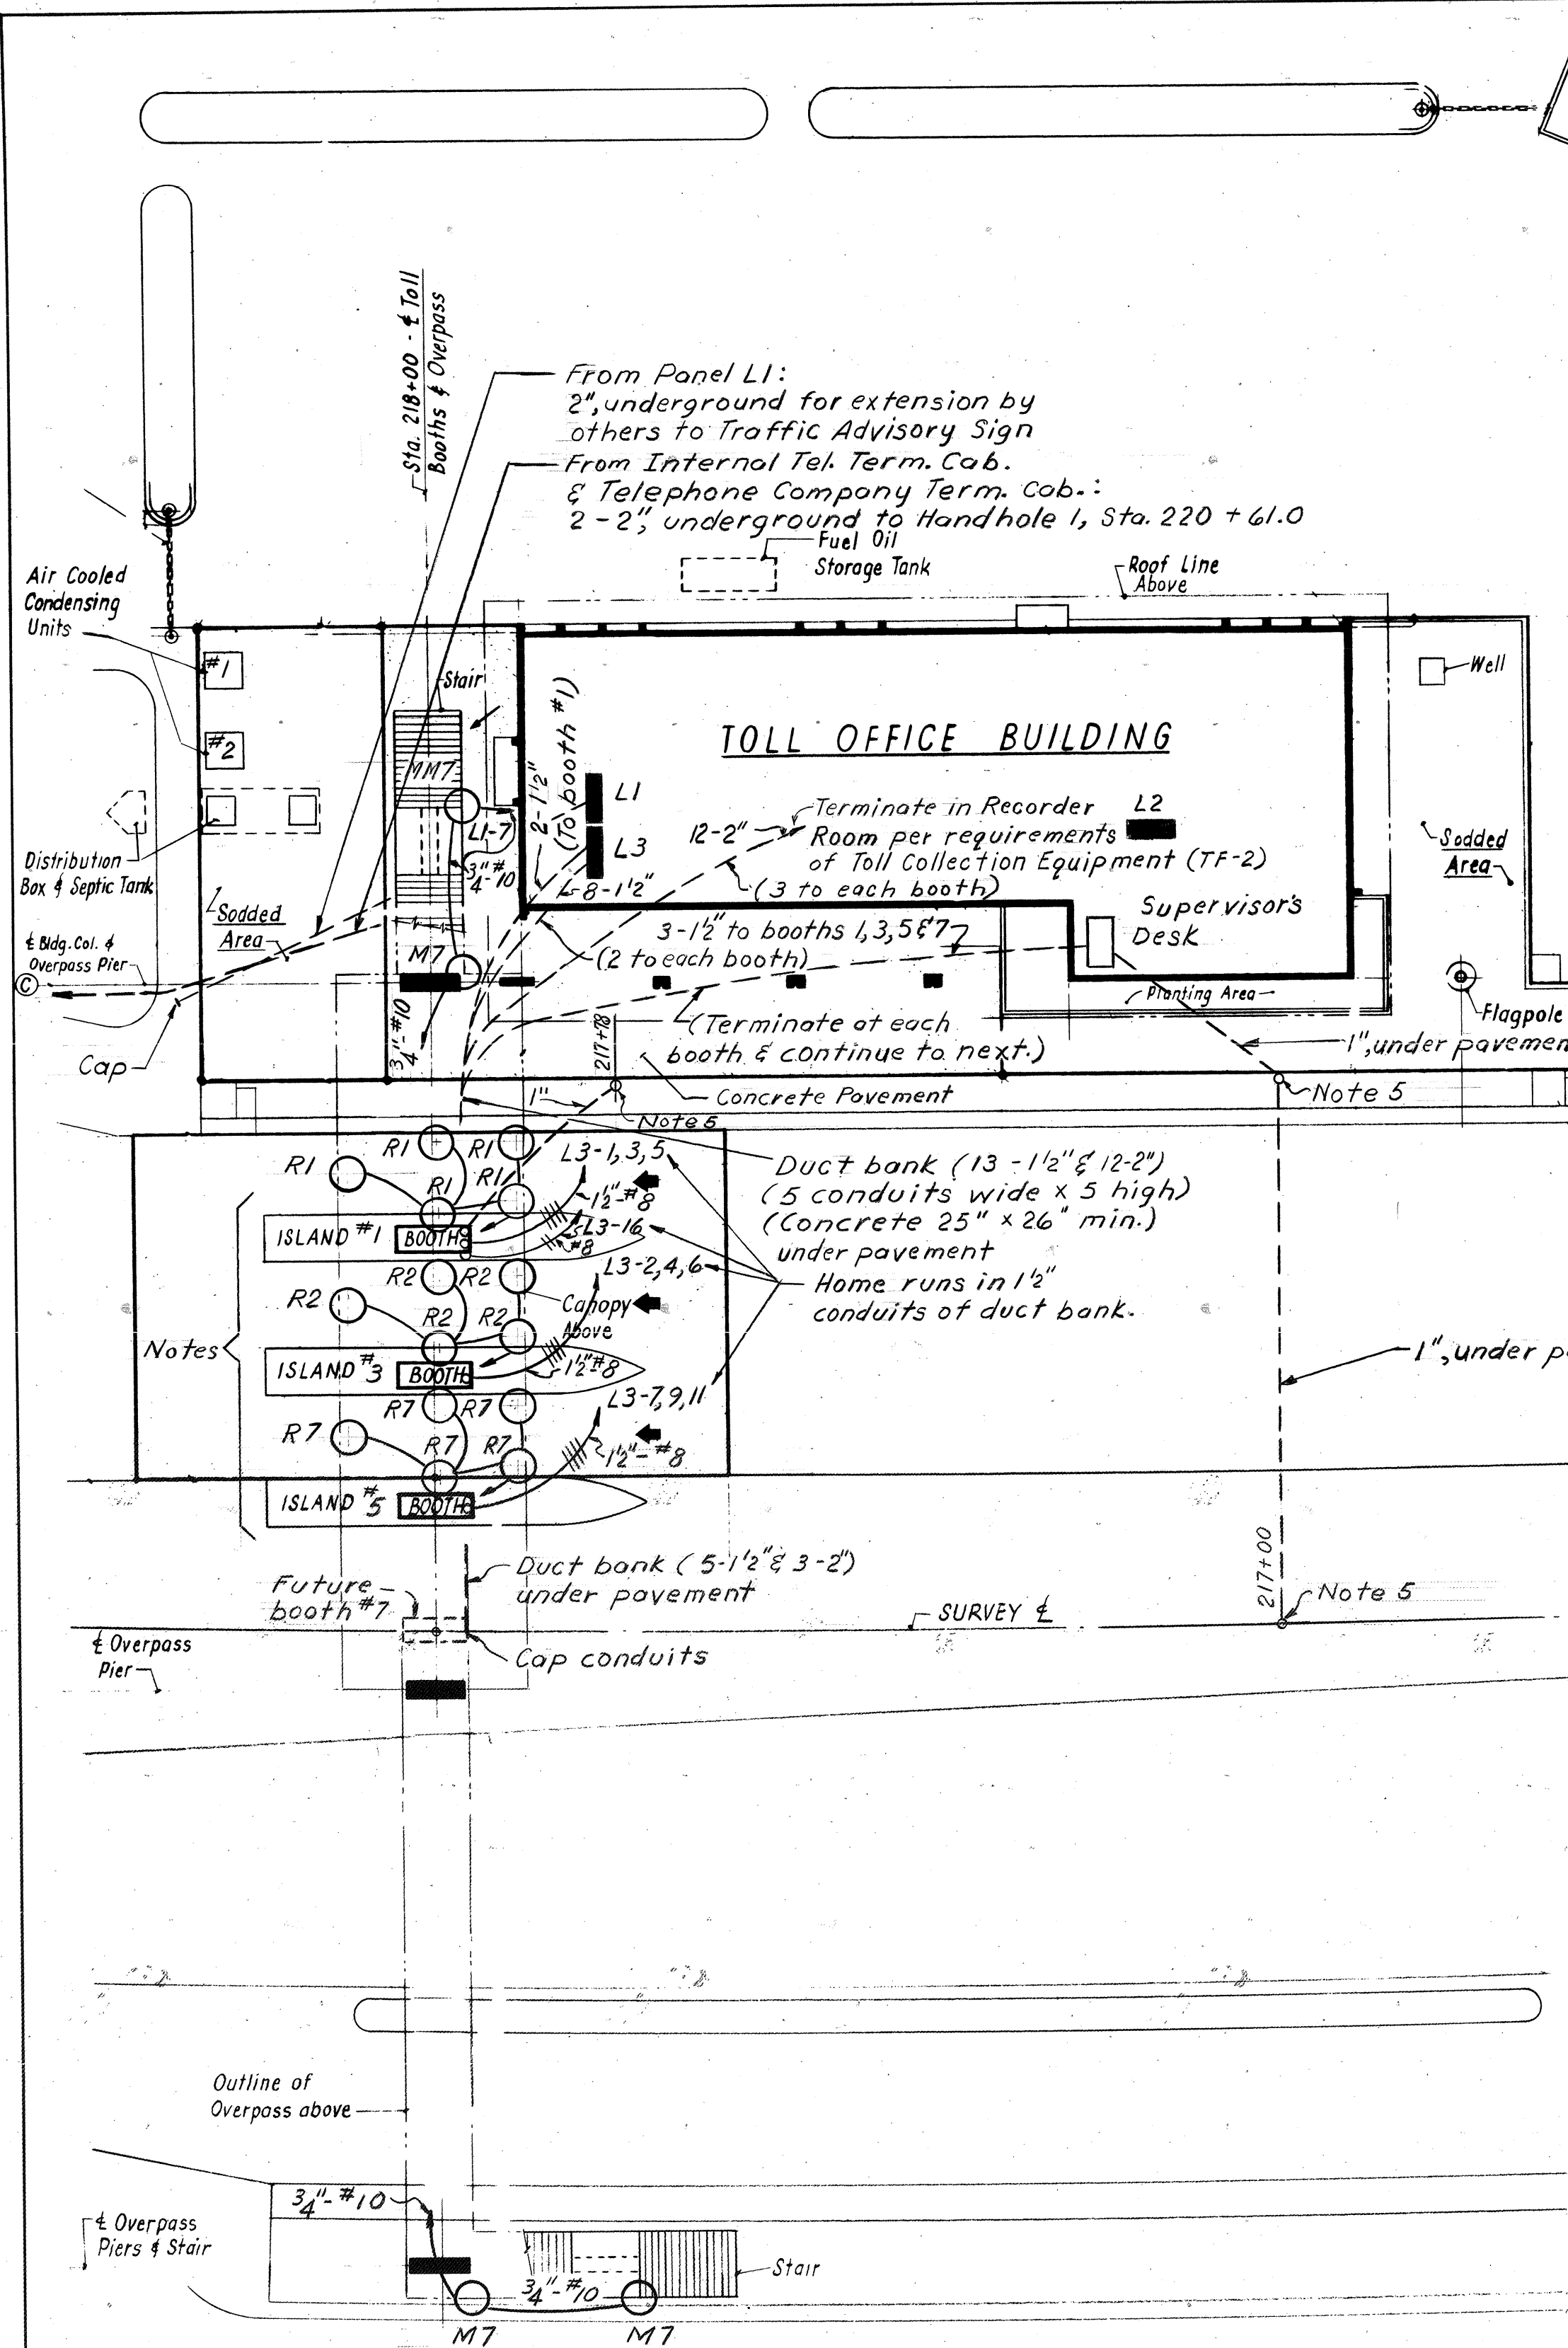 Sta. 218+00 - ℄ Toll
Booths & Overpass
From Panel L1:
2", underground for extension by
others to Traffic Advisory Sign
From Internal Tel. Term. Cab.
& Telephone Company Term. Cab.:
2-2", underground to Handhole 1, Sta. 220 + 61.0
Fuel Oil
Storage Tank
Roof Line
Above
Air Cooled
Condensing
Units
#1
#2
Stair
Well
TOLL OFFICE BUILDING
MM7
2-1½"
(To booth #1)
L1
L3
L1-7
¾"-#10
8-1½"
12-2"
Terminate in Recorder
Room per requirements
of Toll Collection Equipment (TF-2)
L2
(3 to each booth)
Distribution
Box & Septic Tank
Sodded
Area
Sodded
Area
Supervisor's
Desk
3-1½" to booths 1, 3, 5 & 7
(2 to each booth)
℄ Bldg. Col. &
Overpass Pier
C
M7
Planting Area
Flagpole
¾"-#10
217+78
(Terminate at each
booth & continue to next.)
1", under pavemen
Cap
1"
Concrete Pavement
Note 5
Note 5
R1
R1
R1
R1
R1
L3-1,3,5
1½"-#8
ISLAND #1
BOOTH
L3-16
#8
Duct bank (13 - 1½" & 12-2")
(5 conduits wide x 5 high)
(Concrete 25" x 26" min.)
under pavement
Home runs in 1½"
conduits of duct bank.
R2
R2
R2
R2
R2
L3-2,4,6
Canopy
Above
Notes
ISLAND #3
BOOTH
1½"-#8
1", under p
R7
R7
R7
R7
R7
L3-7,9,11
1½"-#8
ISLAND #5
BOOTH
Duct bank (5-1½" & 3-2")
under pavement
Future
booth #7
217+00
Note 5
SURVEY ℄
℄ Overpass
Pier
Cap conduits
Outline of
Overpass above
¾"-#10
℄ Overpass
Piers & Stair
Stair
¾"-#10
M7
M7